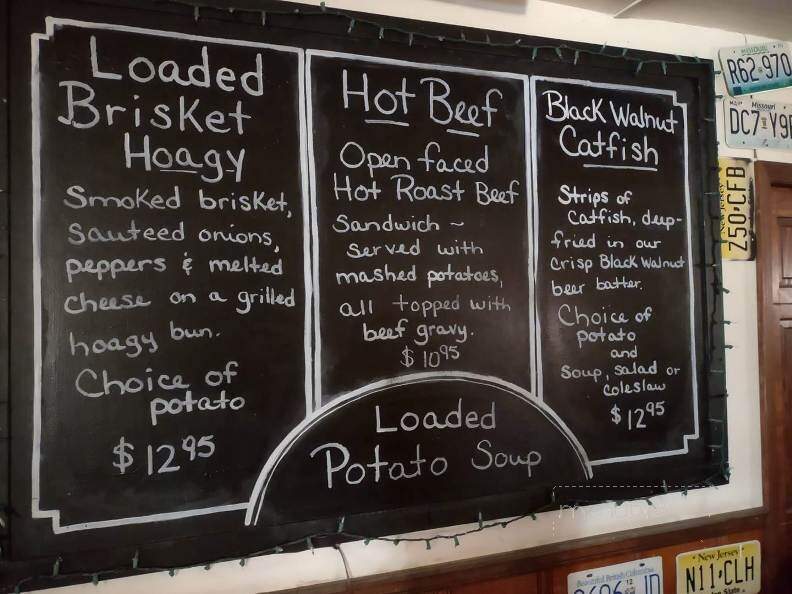 Loaded
Brisket
Hoagy
Smoked brisket,
sauteed onions,
peppers & melted
cheese on a grilled
hoagy bun.
Choice of
potato
$12 95
Hot Beef
Open faced
Hot Roast Beef
Sandwich ~
served with
mashed potatoes,
all topped with
beef gravy.
$10 95
Black Walnut
Catfish
Strips of
Catfish, deep-
fried in our
crisp Black Walnut
beer batter.
Choice of
potato
and
Soup, salad or
coleslaw
$12 95
Loaded
Potato Soup
R62-970
Missouri
DC7
New Jersey
Z50-CFB
Beautiful British Columbia
New Jersey
N11-CLH